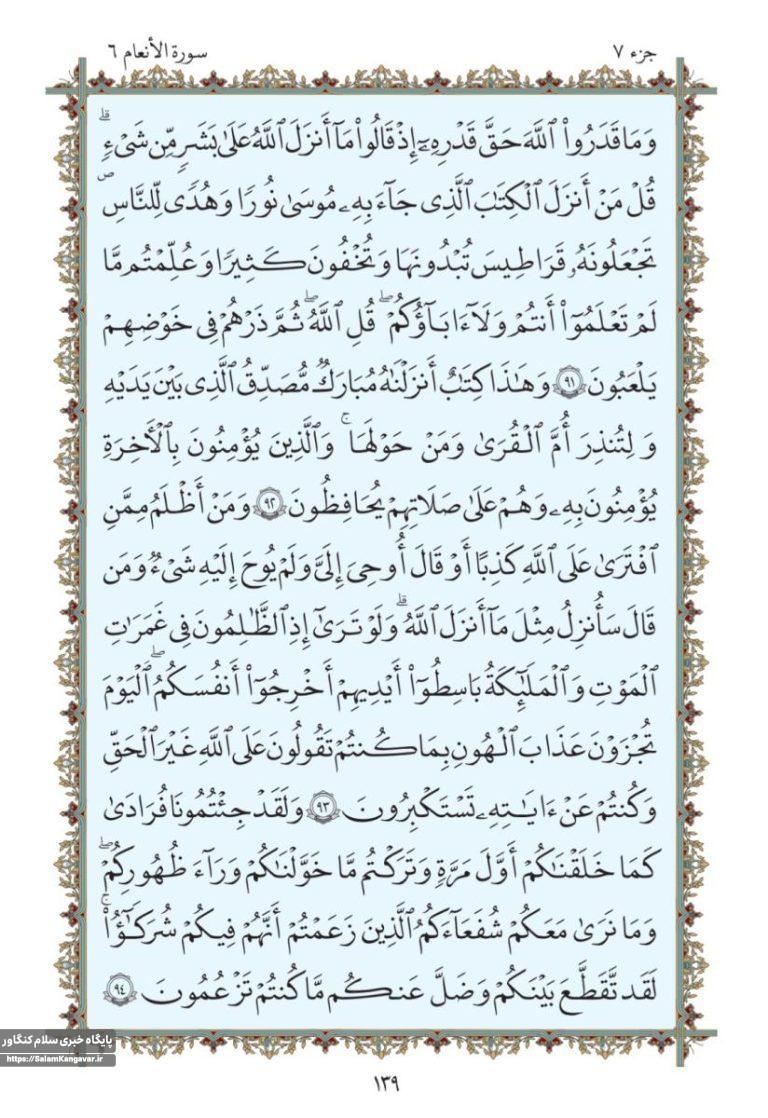 جزء ٧
سورة الأنعام ٦
وَمَا قَدَرُوا۟ ٱللَّهَ حَقَّ قَدْرِهِۦٓ إِذْ قَالُوا۟ مَآ أَنزَلَ ٱللَّهُ عَلَىٰ بَشَرٍ مِّن شَىْءٍ ۗ
قُلْ مَنْ أَنزَلَ ٱلْكِتَٰبَ ٱلَّذِى جَآءَ بِهِۦ مُوسَىٰ نُورًا وَهُدًى لِّلنَّاسِ ۖ
تَجْعَلُونَهُۥ قَرَاطِيسَ تُبْدُونَهَا وَتُخْفُونَ كَثِيرًا وَعُلِّمْتُم مَّا
لَمْ تَعْلَمُوٓا۟ أَنتُمْ وَلَآ ءَابَآؤُكُمْ ۖ قُلِ ٱللَّهُ ۖ ثُمَّ ذَرْهُمْ فِى خَوْضِهِمْ
يَلْعَبُونَ ٩١ وَهَٰذَا كِتَٰبٌ أَنزَلْنَٰهُ مُبَارَكٌ مُّصَدِّقُ ٱلَّذِى بَيْنَ يَدَيْهِ
وَلِتُنذِرَ أُمَّ ٱلْقُرَىٰ وَمَنْ حَوْلَهَا ۚ وَٱلَّذِينَ يُؤْمِنُونَ بِٱلْأَخِرَةِ
يُؤْمِنُونَ بِهِۦ وَهُمْ عَلَىٰ صَلَاتِهِمْ يُحَافِظُونَ ٩٢ وَمَنْ أَظْلَمُ مِمَّنِ
ٱفْتَرَىٰ عَلَى ٱللَّهِ كَذِبًا أَوْ قَالَ أُوحِىَ إِلَىَّ وَلَمْ يُوحَ إِلَيْهِ شَىْءٌ وَمَن
قَالَ سَأُنزِلُ مِثْلَ مَآ أَنزَلَ ٱللَّهُ ۗ وَلَوْ تَرَىٰٓ إِذِ ٱلظَّٰلِمُونَ فِى غَمَرَٰتِ
ٱلْمَوْتِ وَٱلْمَلَٰٓئِكَةُ بَاسِطُوٓا۟ أَيْدِيهِمْ أَخْرِجُوٓا۟ أَنفُسَكُمُ ۖ ٱلْيَوْمَ
تُجْزَوْنَ عَذَابَ ٱلْهُونِ بِمَا كُنتُمْ تَقُولُونَ عَلَى ٱللَّهِ غَيْرَ ٱلْحَقِّ
وَكُنتُمْ عَنْ ءَايَٰتِهِۦ تَسْتَكْبِرُونَ ٩٣ وَلَقَدْ جِئْتُمُونَا فُرَادَىٰ
كَمَا خَلَقْنَٰكُمْ أَوَّلَ مَرَّةٍ وَتَرَكْتُم مَّا خَوَّلْنَٰكُمْ وَرَآءَ ظُهُورِكُمْ ۖ
وَمَا نَرَىٰ مَعَكُمْ شُفَعَآءَكُمُ ٱلَّذِينَ زَعَمْتُمْ أَنَّهُمْ فِيكُمْ شُرَكَٰٓؤُا۟ ۚ
لَقَد تَّقَطَّعَ بَيْنَكُمْ وَضَلَّ عَنكُم مَّا كُنتُمْ تَزْعُمُونَ ٩٤
پایگاه خبری سلام کنگاور
https://SalamKangavar.ir
١٣٩